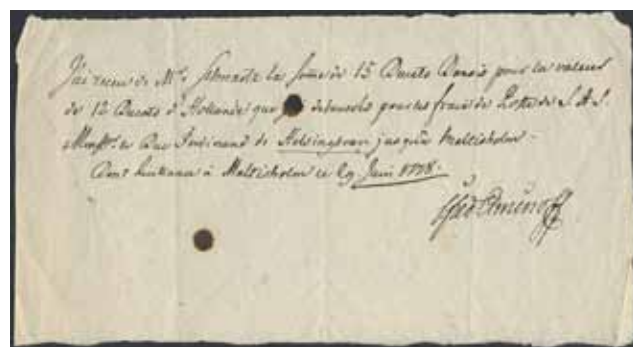 J'ai receu de Mr. Schwartz la some de 15 Ducats Danois pour la valeur
de 12 Ducats d'Hollande que deboursés pour les frais de Poste de S. A. S.
Monsgr. le Duc Ferdinand de Helsingeur jusqu'à Maltisholm
Dont Quittance à Maltisholm le 29 Juin 1778.